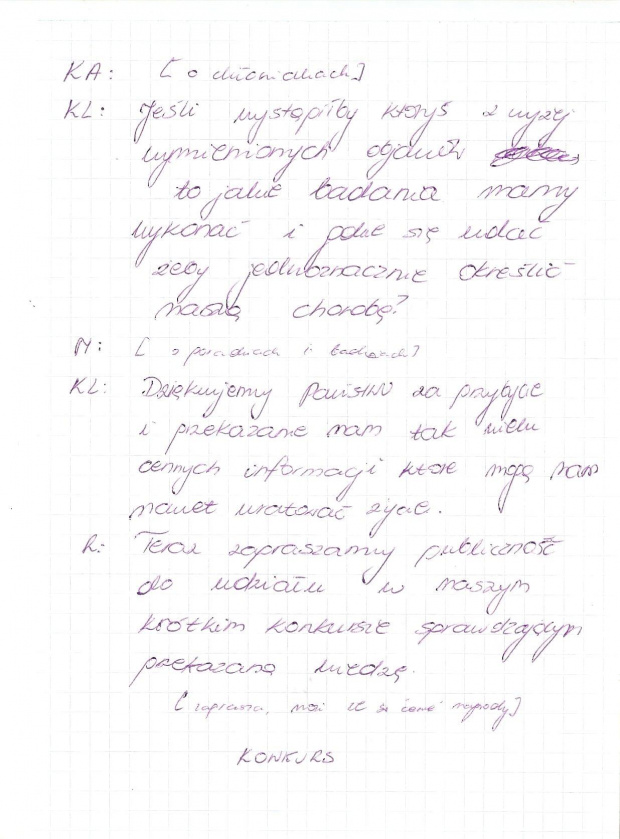 KA: [o chłoniakach]
KL: Jeśli wystąpiłby któryś z wyżej
wymienionych objawów
to jakie badania mamy
wykonać i gdzie się udać
żeby jednoznacznie określić
naszą chorobę?
M: [o poradniach i badaniach]
KL: Dziękujemy PAŃSTWU za przybycie
i przekazanie nam tak wielu
cennych informacji które mogą nam
nawet uratować życie.
R: Teraz zapraszamy publiczność
do udziału w naszym
krótkim konkursie sprawdzającym
przekazaną wiedzę.
[zaprasza, mówi że są cenne nagrody]
KONKURS